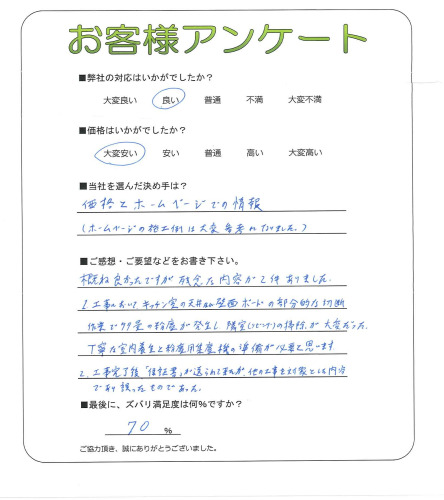 お客様アンケート
■弊社の対応はいかがでしたか？
大変良い 良い 普通 不満 大変不満
■価格はいかがでしたか？
大変安い 安い 普通 高い 大変高い
■当社を選んだ決め手は？
価格とホームページでの情報
(ホームページの施工例は大変参考になりました。)
■ご感想・ご要望などをお書き下さい。
概ね良かったですが残念な内容が2件ありました.
1.工事においてキッチン室の天井及び壁面ボードの部分的な切断
作業で多量の粉塵が発生し隣室(リビング)の掃除が大変だった.
丁寧な室内養生と粉塵用集塵機の準備が必要と思います
2.工事完了後「保証書」が送られてきたが,他の工事を対象とした内容
であり誤ったものであった.
■最後に、ズバリ満足度は何%ですか？
70 %
ご協力頂き、誠にありがとうございました。